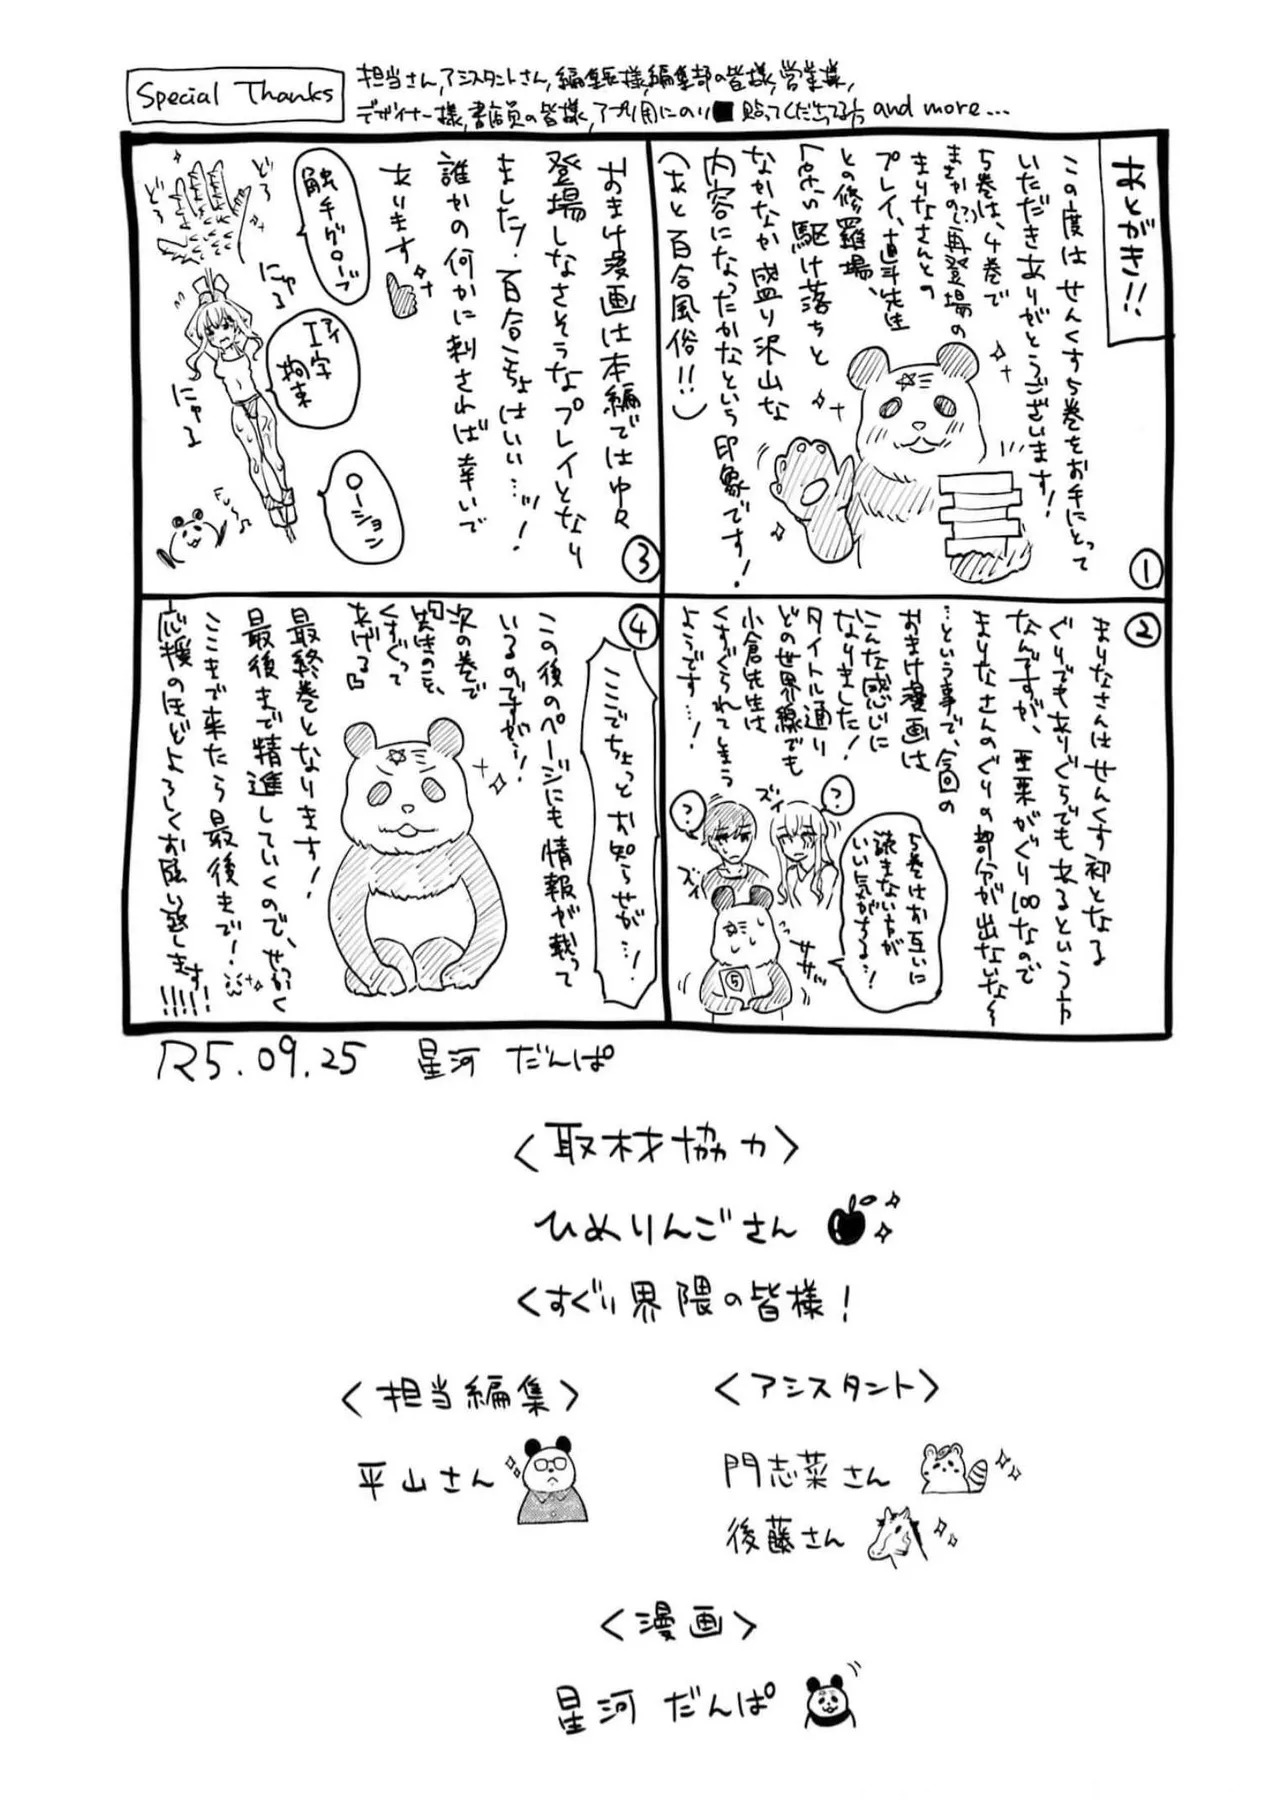 Special Thanks
担当さん,アシスタントさん,編集長様,編集部の皆様,営業様,
デザイナー様,書店員の皆様,アプリ用にのり■貼ってくださってる方 and more...
あとがき!!
この度はせんくす5巻をお手にとって
いただきありがとうございます!
5巻は、4巻で
まさかの(?)再登場の
まりなさんとの
プレイ、直斗先生
との修羅場、
駆け落ちと
なかなか盛り沢山な
内容になったかなという印象です!
(あと百合風俗!!)
①
②
まりなさんはせんくす初となる
ぐりでもありぐらでもあるという方
なんですが、亜栗がぐり100なので
まりなさんのぐりの部分が出ないな〜
…という事で、今回の
おまけ漫画は
こんな感じに
なりました!
タイトル通り
どの世界線でも
小倉先生は
くすぐられてしまう
ようです…!
?
?
ズイ
ズイ
5巻はお互いに
読まない方が
いい気がする…!
ササッ
⑤
③
おまけ漫画は本編ではゆめ
登場しなさそうなプレイとなり
ました!百合こちょはいい…ッ!
誰かの何かに刺されば幸いで
あります
触手グローブ
どろ
どろ
アイ
I字
拘束
にゅる
にゅる
ローション
Fu〜♪
④
ここでちょっとお知らせが…!
この後のページにも情報が載って
いるのですが…!
次の巻で
『先生のこと、
くすぐって
あげる』
最終巻となります!
最後まで精進していくので、せっかく
ここまで来たら最後まで!
応援のほどよろしくお願い致します!!!!!
R5.09.25 星河 だんぱ
<取材協力>
ひめりんごさん
くすぐり界隈の皆様!
<担当編集>
平山さん
<アシスタント>
門志菜さん
後藤さん
<漫画>
星河 だんぱ